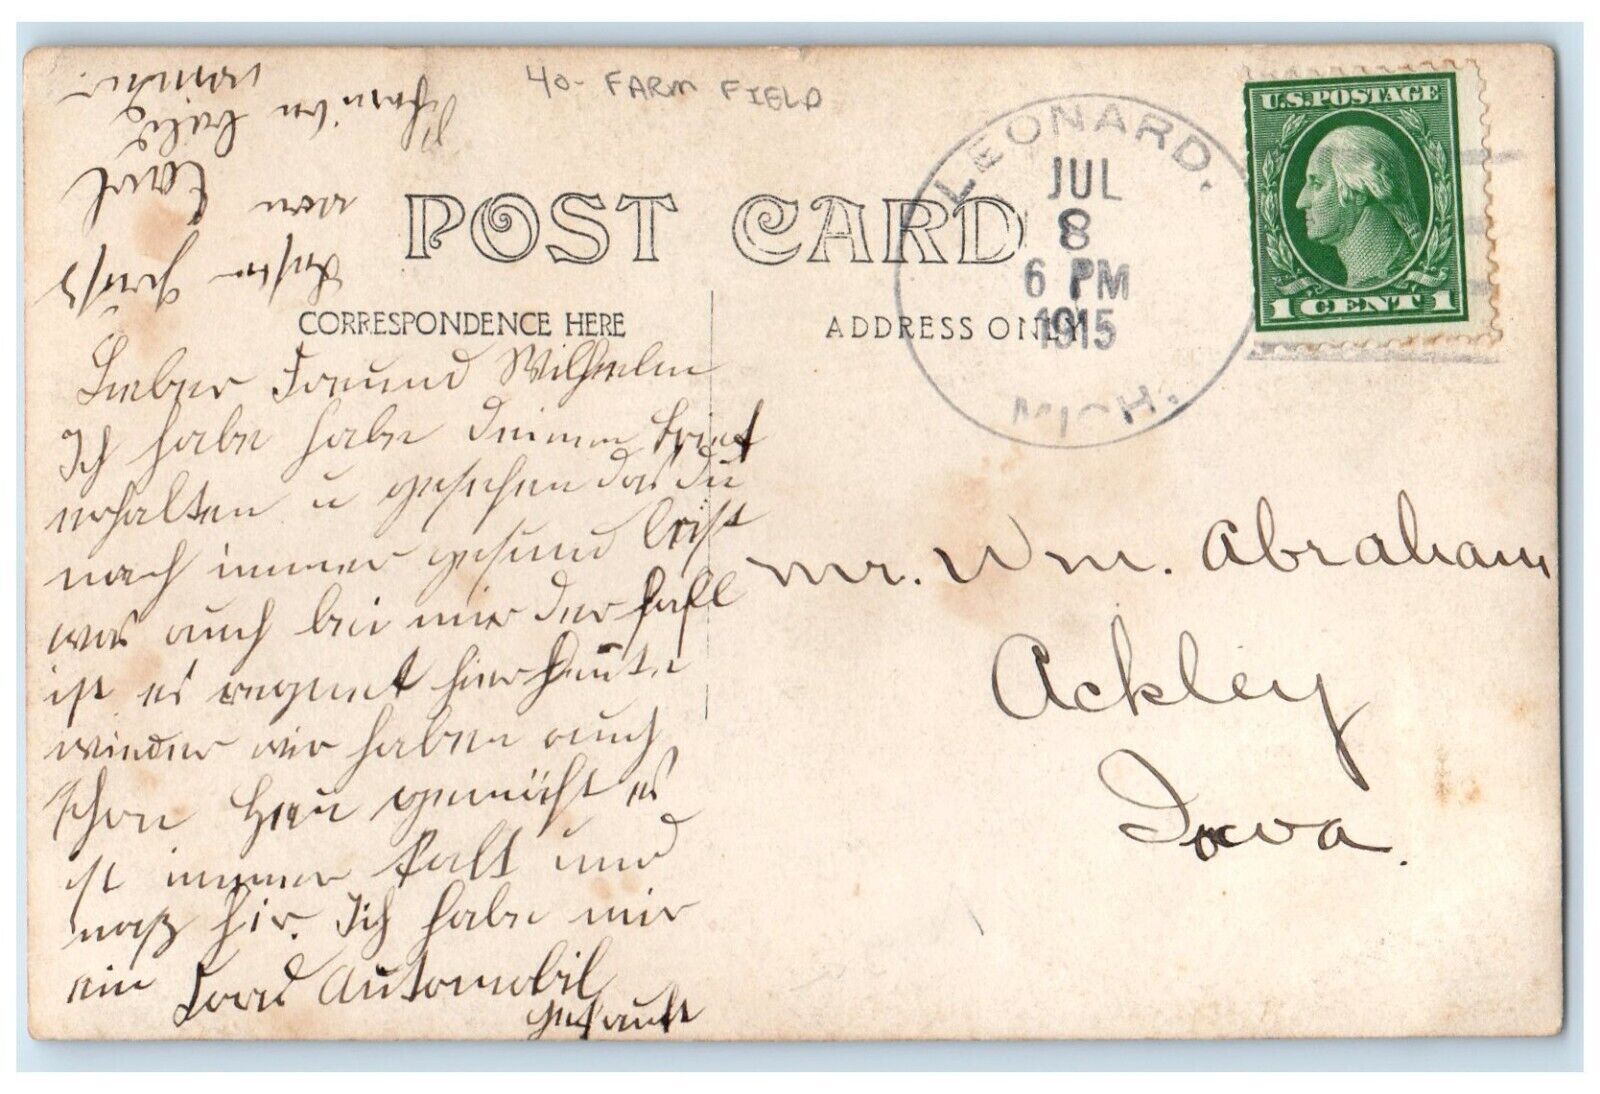 40- FARM FIELD
POST CARD
CORRESPONDENCE HERE
ADDRESS ONLY
LEONARD.
JUL
8
6 PM
1915
MICH.
U.S. POSTAGE
1 CENT 1
Mr. Wm. Abraham
Ackley
Iowa.
Lieber Freund Wilhelm
Ich habe habe deinen brief
erhalten u gesehen das du
noch immer gesund bist
was auch bei mir der fall
ist es regnet hier heute
wieder wir haben auch
schon Heu gemacht es
ist immer kalt und
naß hir. Ich habe mir
ein Ford Automobil
gekauft
Gruß
von Carl
Schreibe bald
wieder.